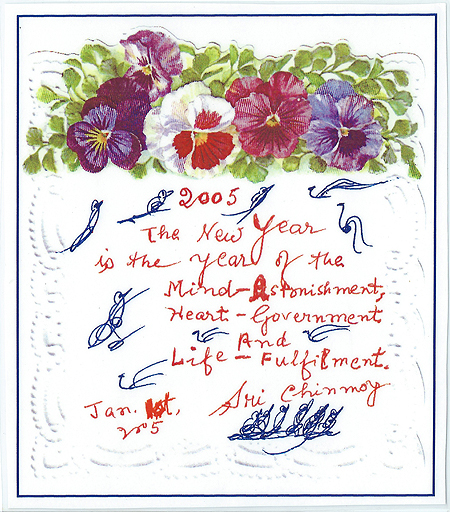 2005
The New Year
is the year of the
Mind-Astonishment,
Heart-Government
And
Life-Fulfilment.
Sri Chinmoy
Jan. 1st,
2005